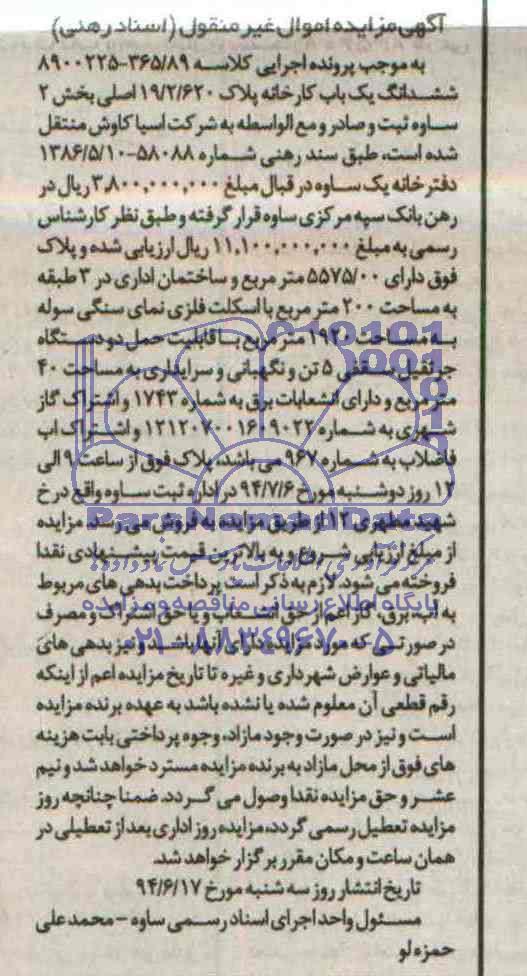 آگهی مزایده اموال غیر منقول (اسناد رهنی)
به موجب پرونده اجرایی کلاسه ۳۶۵/۸۹-۸۹۰۰۲۲۵
ششدانگ یک باب کارخانه پلاک ۱۹/۲/۶۲۰ اصلی بخش ۲
ساوه ثبت و صادر و مع الواسطه به شرکت اسیا کاوش منتقل
شده است، طبق سند رهنی شماره ۵۸۰۸۸-۱۳۸۶/۵/۱۰
دفترخانه یک ساوه در قبال مبلغ ۳,۸۰۰,۰۰۰,۰۰۰ ریال در
رهن بانک سپه مرکزی ساوه قرار گرفته و طبق نظر کارشناس
رسمی به مبلغ ۱۱,۱۰۰,۰۰۰,۰۰۰ ریال ارزیابی شده و پلاک
فوق دارای ۵۵۷۵/۰۰ متر مربع و ساختمان اداری در ۳ طبقه
به مساحت ۲۰۰ متر مربع با اسکلت فلزی نمای سنگی سوله
به مساحت ۱۹۲۰ متر مربع با قابلیت حمل دو دستگاه
جرثقیل سقفی ۵ تن و نگهبانی و سرایداری به مساحت ۴۰
متر مربع و دارای انشعابات برق به شماره ۱۷۴۳ و اشتراک گاز
شهری به شماره ۱۲۱۲۰۷۰۰۱۶۰۹۰۲۲ و اشتراک اب
فاضلاب به شماره ۹۶۷ می باشد، پلاک فوق از ساعت ۹ الی
۱۲ روز دوشنبه مورخ ۹۴/۷/۶ در اداره ثبت ساوه واقع در خ
شهید مطهری ۱۲ از طریق مزایده به فروش می رسد. مزایده
از مبلغ ارزیابی شروع و به بالاترین قیمت پیشنهادی نقدا
فروخته می شود. لازم به ذکر است پرداخت بدهی های مربوط
به آب، برق، گاز اعم از حق انشعاب و یا حق اشتراک و مصرف
در صورتی که مورد مزایده دارای آنها باشد و نیز بدهی های
مالیاتی و عوارض شهرداری و غیره تا تاریخ مزایده اعم از اینکه
رقم قطعی آن معلوم شده یا نشده باشد به عهده برنده مزایده
است و نیز در صورت وجود مازاد، وجوه پرداختی بابت هزینه
های فوق از محل مازاد به برنده مزایده مسترد خواهد شد و نیم
عشر و حق مزایده نقدا وصول می گردد. ضمنا چنانچه روز
مزایده تعطیل رسمی گردد، مزایده روز اداری بعد از تعطیلی در
همان ساعت و مکان مقرر برگزار خواهد شد.
تاریخ انتشار روز سه شنبه مورخ ۹۴/۶/۱۷
مسئول واحد اجرای اسناد رسمی ساوه - محمدعلی
حمزه لو
ParsNamadData
پایگاه اطلاع رسانی مناقصه و مزایده
۰۲۱-۸۸۳۴۹۶۷۰-۵